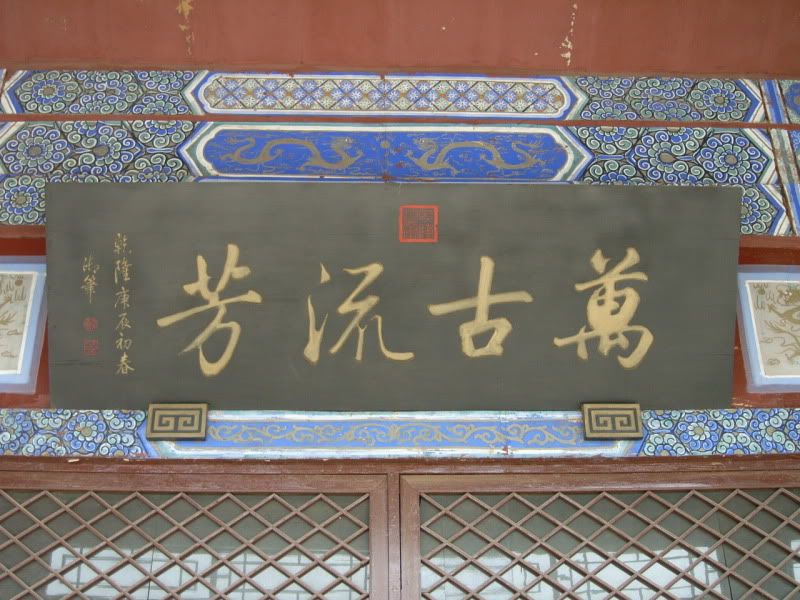 萬古流芳
乾隆庚辰初春
御筆